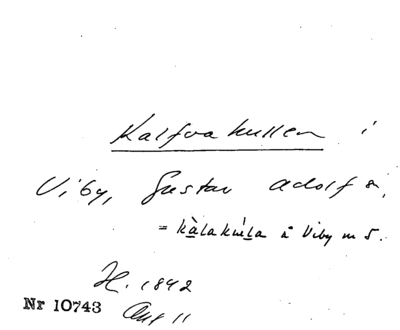 Kalfvakullen i
Viby, Gustav Adolf s.
= kàlakúla å Viby m 5.
H. 1842
Nr 10743